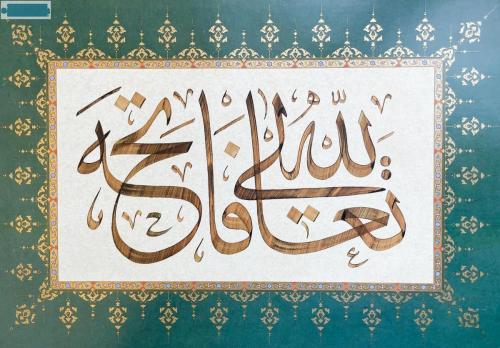 لله تعالى فاتحه